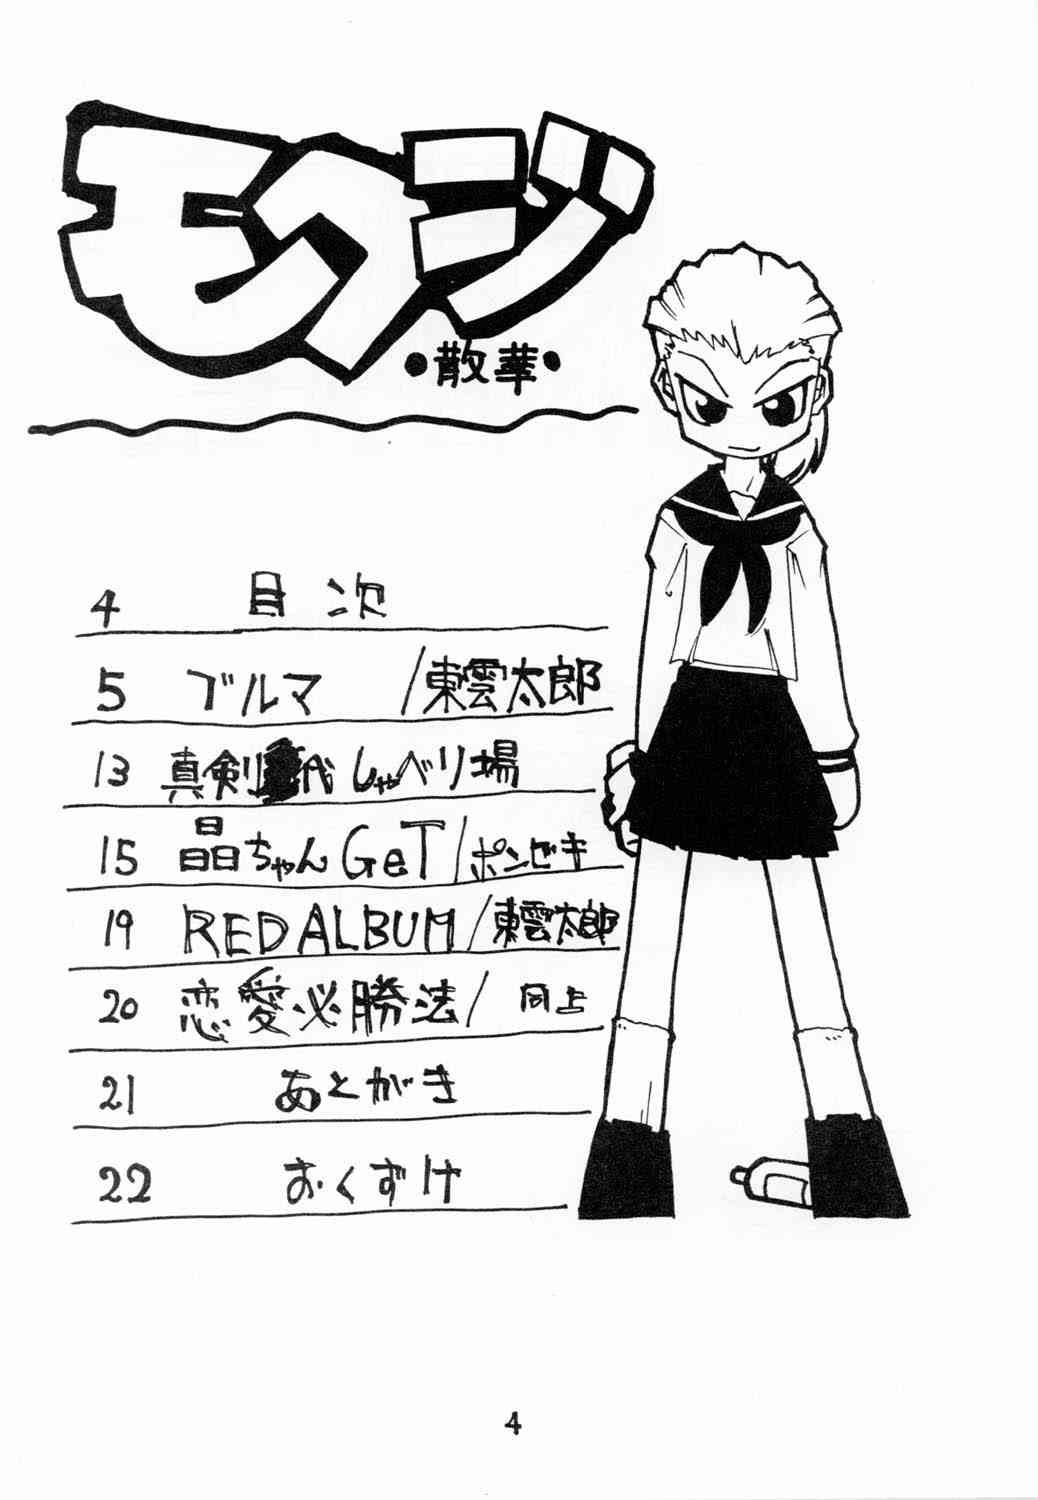 モクジ
・散華・
4 目次
5 ブルマ /東雲太郎
13 真剣 代しゃべり場
15 晶ちゃんGeT/ポンセキ
19 RED ALBUM/東雲太郎
20 恋愛必勝法/同上
21 あとがき
22 おくずけ
4